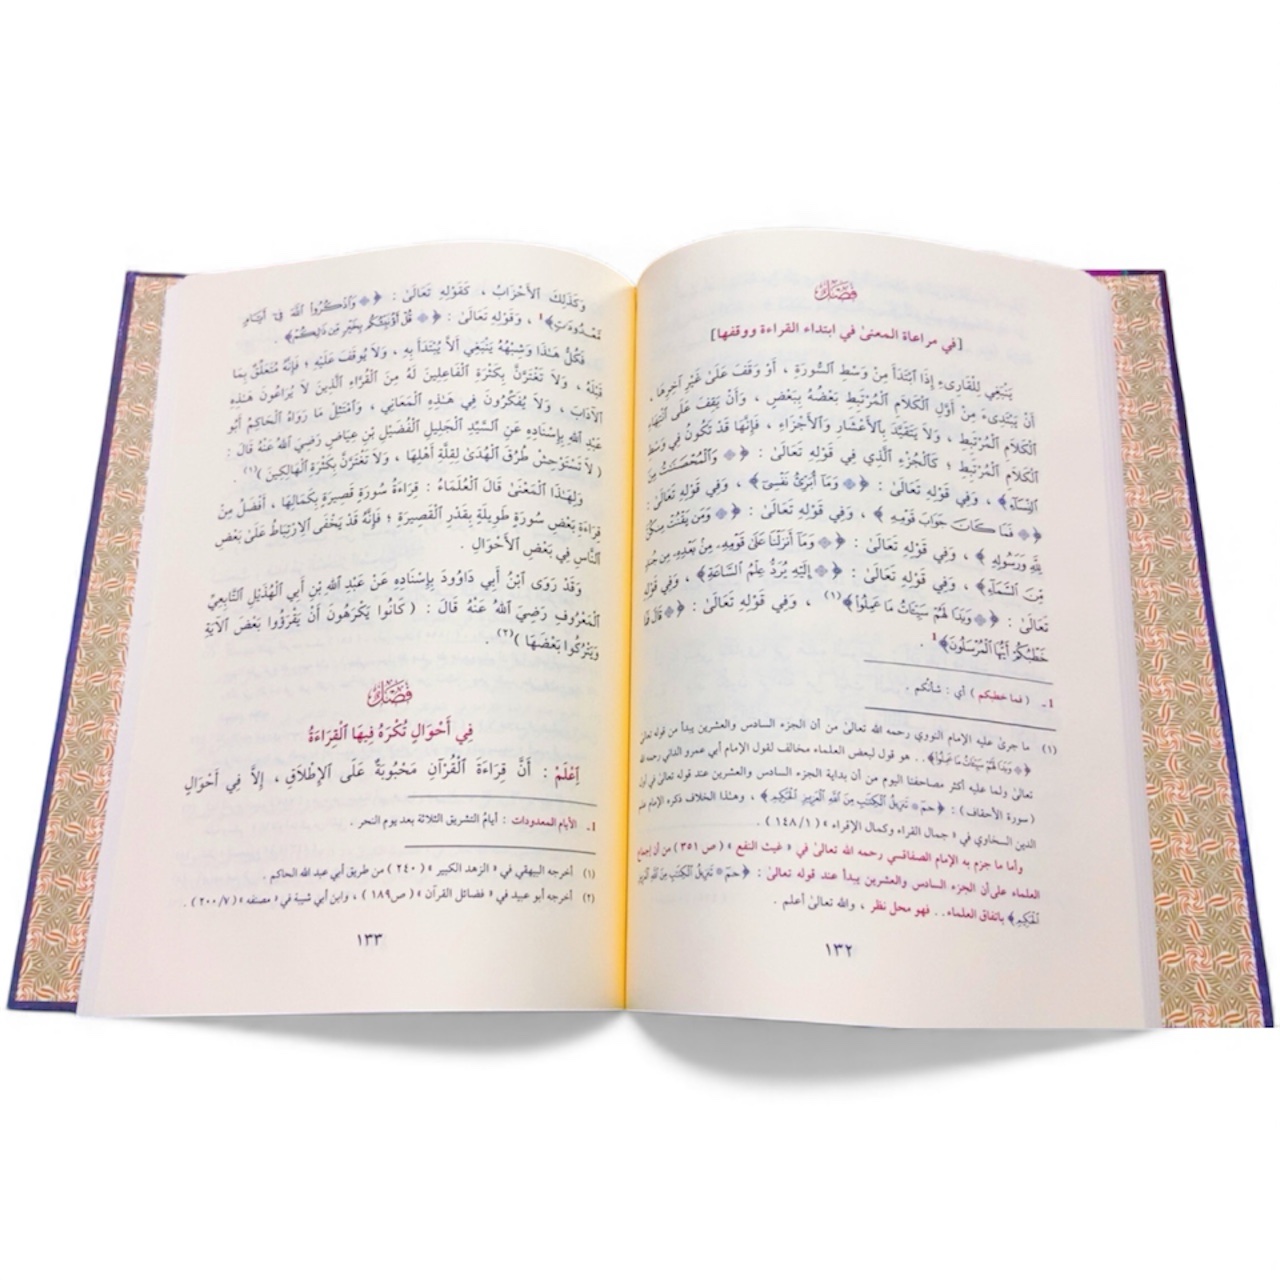 فصل
[في مراعاة المعنىٰ في ابتداء القراءة ووقفها]
يَنْبَغِي لِلْقَارِىءِ إِذَا ٱبْتَدَأَ مِنْ وَسْطِ ٱلسُّورَةِ ، أَوْ وَقَفَ عَلَىٰ غَيْرِ آخِرِهَا ،
أَنْ يَبْتَدِىءَ مِنْ أَوَّلِ ٱلْكَلَامِ ٱلْمُرْتَبِطِ بَعْضُهُ بِبَعْضٍ ، وَأَنْ يَقِفَ عَلَى ٱنْتِهَاءِ
ٱلْكَلَامِ ٱلْمُرْتَبِطِ ، وَلَا يَتَقَيَّدَ بِٱلْأَعْشَارِ وَٱلْأَجْزَاءِ ، فَإِنَّهَا قَدْ تَكُونُ فِي وَسْطِ
ٱلْكَلَامِ ٱلْمُرْتَبِطِ ؛ كَٱلْجُزْءِ ٱلَّذِي فِي قَوْلِهِ تَعَالَىٰ : ﴿ ۞ وَٱلْمُحْصَنَٰتُ مِنَ
ٱلنِّسَآءِ ﴾ ، وَفِي قَوْلِهِ تَعَالَىٰ : ﴿ ۞ وَمَآ أُبَرِّئُ نَفْسِىٓ ﴾ ، وَفِي قَوْلِهِ تَعَالَىٰ :
﴿ ۞ فَمَا كَانَ جَوَابَ قَوْمِهِۦ ﴾ ، وَفِي قَوْلِهِ تَعَالَىٰ : ﴿ ۞ وَمَن يَقْنُتْ مِنكُنَّ
لِلَّهِ وَرَسُولِهِۦ ﴾ ، وَفِي قَوْلِهِ تَعَالَىٰ : ﴿ ۞ وَمَآ أَنزَلْنَا عَلَىٰ قَوْمِهِۦ مِنۢ بَعْدِهِۦ مِن جُندٍ
مِّنَ ٱلسَّمَآءِ ﴾ ، وَفِي قَوْلِهِ تَعَالَىٰ : ﴿ ۞ إِلَيْهِ يُرَدُّ عِلْمُ ٱلسَّاعَةِ ﴾ ، وَفِي قَوْلِهِ
تَعَالَىٰ : ﴿ ۞ وَبَدَا لَهُمْ سَيِّئَاتُ مَا عَمِلُوا۟ ﴾(١) ، وَفِي قَوْلِهِ تَعَالَىٰ : ﴿ ۞ قَالَ فَمَا
خَطْبُكُمْ أَيُّهَا ٱلْمُرْسَلُونَ ﴾1 .
1ـ ( فما خطبكم ) أي : شأنُكم .
(١) ما جرىٰ عليه الإمام النووي رحمه الله تعالىٰ من أن الجزء السادس والعشرين يبدأ من قوله تعالىٰ
﴿ ۞ وَبَدَا لَهُمْ سَيِّئَاتُ مَا عَمِلُوا۟ ﴾ .. هو قول لبعض العلماء مخالف لقول الإمام أبي عمرو الداني رحمه الله
تعالىٰ ولما عليه أكثر مصاحفنا اليوم من أن بداية الجزء السادس والعشرين عند قوله تعالىٰ في أول
(سورة الأحقاف) : ﴿ حمٓ * تَنزِيلُ ٱلْكِتَٰبِ مِنَ ٱللَّهِ ٱلْعَزِيزِ ٱلْحَكِيمِ ﴾ ، وهذا الخلاف ذكره الإمام علم
الدين السخاوي في « جمال القراء وكمال الإقراء » (١/ ١٤٨) .
وأما ما جزم به الإمام الصفاقسي رحمه الله تعالىٰ في « غيث النفع » (ص ٣٥١) من أن إجماع
العلماء علىٰ أن الجزء السادس والعشرين يبدأ عند قوله تعالىٰ : ﴿ حمٓ * تَنزِيلُ ٱلْكِتَٰبِ مِنَ ٱللَّهِ ٱلْعَزِيزِ
ٱلْحَكِيمِ ﴾ باتفاق العلماء.. فهو محل نظر ، والله تعالىٰ أعلم .
١٣٢
وَكَذَلِكَ ٱلْأَحْزَابُ ، كَقَوْلِهِ تَعَالَىٰ : ﴿ ۞ وَٱذْكُرُوا۟ ٱللَّهَ فِىٓ أَيَّامٍ
مَّعْدُودَٰتٍ ﴾1 ، وَقَوْلِهِ تَعَالَىٰ : ﴿ ۞ قُلْ أَؤُنَبِّئُكُم بِخَيْرٍ مِّن ذَٰلِكُمْ ﴾ .
فَكُلُّ هَـٰذَا وَشِبْهُهُ يَنْبَغِي أَلَّا يُبْتَدَأَ بِهِ ، وَلَا يُوقَفَ عَلَيْهِ ؛ فَإِنَّهُ مُتَعَلِّقٌ بِمَا
قَبْلَهُ ، وَلَا تَغْتَرَّنَّ بِكَثْرَةِ ٱلْفَاعِلِينَ لَهُ مِنَ ٱلْقُرَّاءِ ٱلَّذِينَ لَا يُرَاعُونَ هَـٰذِهِ
ٱلْآدَابَ ، وَلَا يُفَكِّرُونَ فِي هَـٰذِهِ ٱلْمَعَانِي ، وَٱمْتَثِلْ مَا رَوَاهُ ٱلْحَاكِمُ أَبُو
عَبْدِ ٱللهِ بِإِسْنَادِهِ عَنِ ٱلسَّيِّدِ ٱلْجَلِيلِ ٱلْفُضَيْلِ بْنِ عِيَاضٍ رَضِيَ ٱللهُ عَنْهُ قَالَ :
( لَا تَسْتَوْحِشْ طُرُقَ ٱلْهُدَىٰ لِقِلَّةِ أَهْلِهَا ، وَلَا تَغْتَرَّنَّ بِكَثْرَةِ ٱلْهَالِكِينَ )(١) .
وَلِهَـٰذَا ٱلْمَعْنَىٰ قَالَ ٱلْعُلَمَاءُ : قِرَاءَةُ سُورَةٍ قَصِيرَةٍ بِكَمَالِهَا ، أَفْضَلُ مِنْ
قِرَاءَةِ بَعْضِ سُورَةٍ طَوِيلَةٍ بِقَدْرِ ٱلْقَصِيرَةِ ؛ فَإِنَّهُ قَدْ يَخْفَى ٱلِٱرْتِبَاطُ عَلَىٰ بَعْضِ
ٱلنَّاسِ فِي بَعْضِ ٱلْأَحْوَالِ .
وَقَدْ رَوَى ٱبْنُ أَبِي دَاوُودَ بِإِسْنَادِهِ عَنْ عَبْدِ ٱللهِ بْنِ أَبِي ٱلْهُذَيْلِ ٱلتَّابِعِيِّ
ٱلْمَعْرُوفِ رَضِيَ ٱللهُ عَنْهُ قَالَ : ( كَانُوا يَكْرَهُونَ أَنْ يَقْرَؤُوا بَعْضَ ٱلْآيَةِ
وَيَتْرُكُوا بَعْضَهَا )(٢) .
فصل
فِي أَحْوَالٍ تُكْرَهُ فِيهَا ٱلْقِرَاءَةُ
اِعْلَمْ : أَنَّ قِرَاءَةَ ٱلْقُرْآنِ مَحْبُوبَةٌ عَلَى ٱلْإِطْلَاقِ ، إِلَّا فِي أَحْوَالٍ
1ـ الأيام المعدودات : أيامُ التشريق الثلاثة بعد يوم النحر .
(١) أخرجه البيهقي في « الزهد الكبير » (٢٤٠) من طريق أبي عبد الله الحاكم .
(٢) أخرجه أبو عبيد في « فضائل القرآن » (ص١٨٩) ، وابن أبي شيبة في « مصنفه » (٧/ ٢٠٠) .
١٣٣